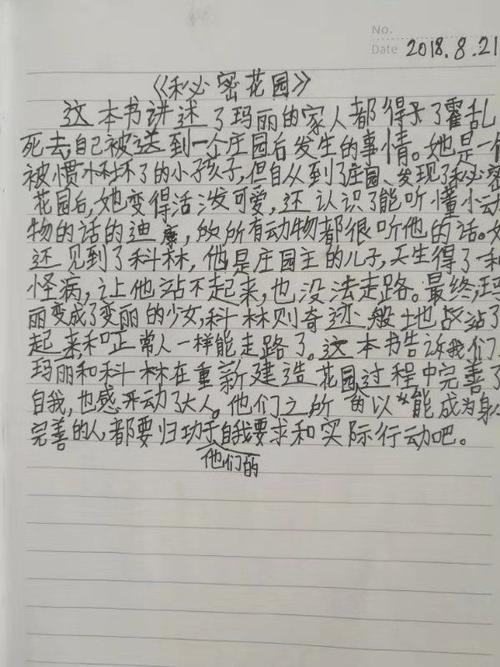 No.
Date 2018.8.21
《秘密花园》
这本书讲述了玛丽的家人都得了霍乱
死去自己被送到一个庄园后发生的事情。她是一个
被惯坏了的小孩子,但自从到了庄园、发现了秘密
花园后,她变得活泼可爱,还认识了能听懂小动
物的话的迪康,故所有动物都很听他的话。她
还见到了科林,他是庄园主的儿子,天生得了一种
怪病,让他站不起来,也没法走路。最终,玛
丽变成了变丽的少女,科林则奇迹般地战站了
起来和正常人一样能走路了。这本书告诉我们,
玛丽和科林在重新建造花园过程中完善了
自我,也感动了大人。他们之所"以"能成为身心
完善的人都要归功于他们的自我要求和实际行动吧。